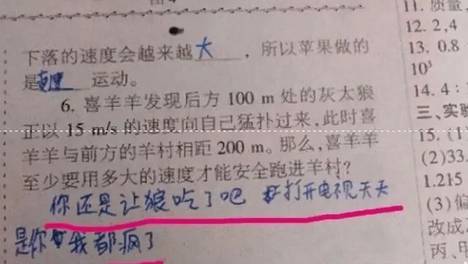 下落的速度会越来越大，所以苹果做的
是 运动。
6. 喜羊羊发现后方 100 m 处的灰太狼
正以 15 m/s 的速度向自己猛扑过来,此时喜
羊羊与前方的羊村相距 200 m。那么,喜羊羊
至少要用多大的速度才能安全跑进羊村?
你还是让狼吃了吧 打开电视天天
是你 我都疯了
11. 质量
12. 2,4
13. 0.8
10³
14. 4:
三、实验
15. (1
(2)33.
1.215
(3)偏
改成
丙、甲